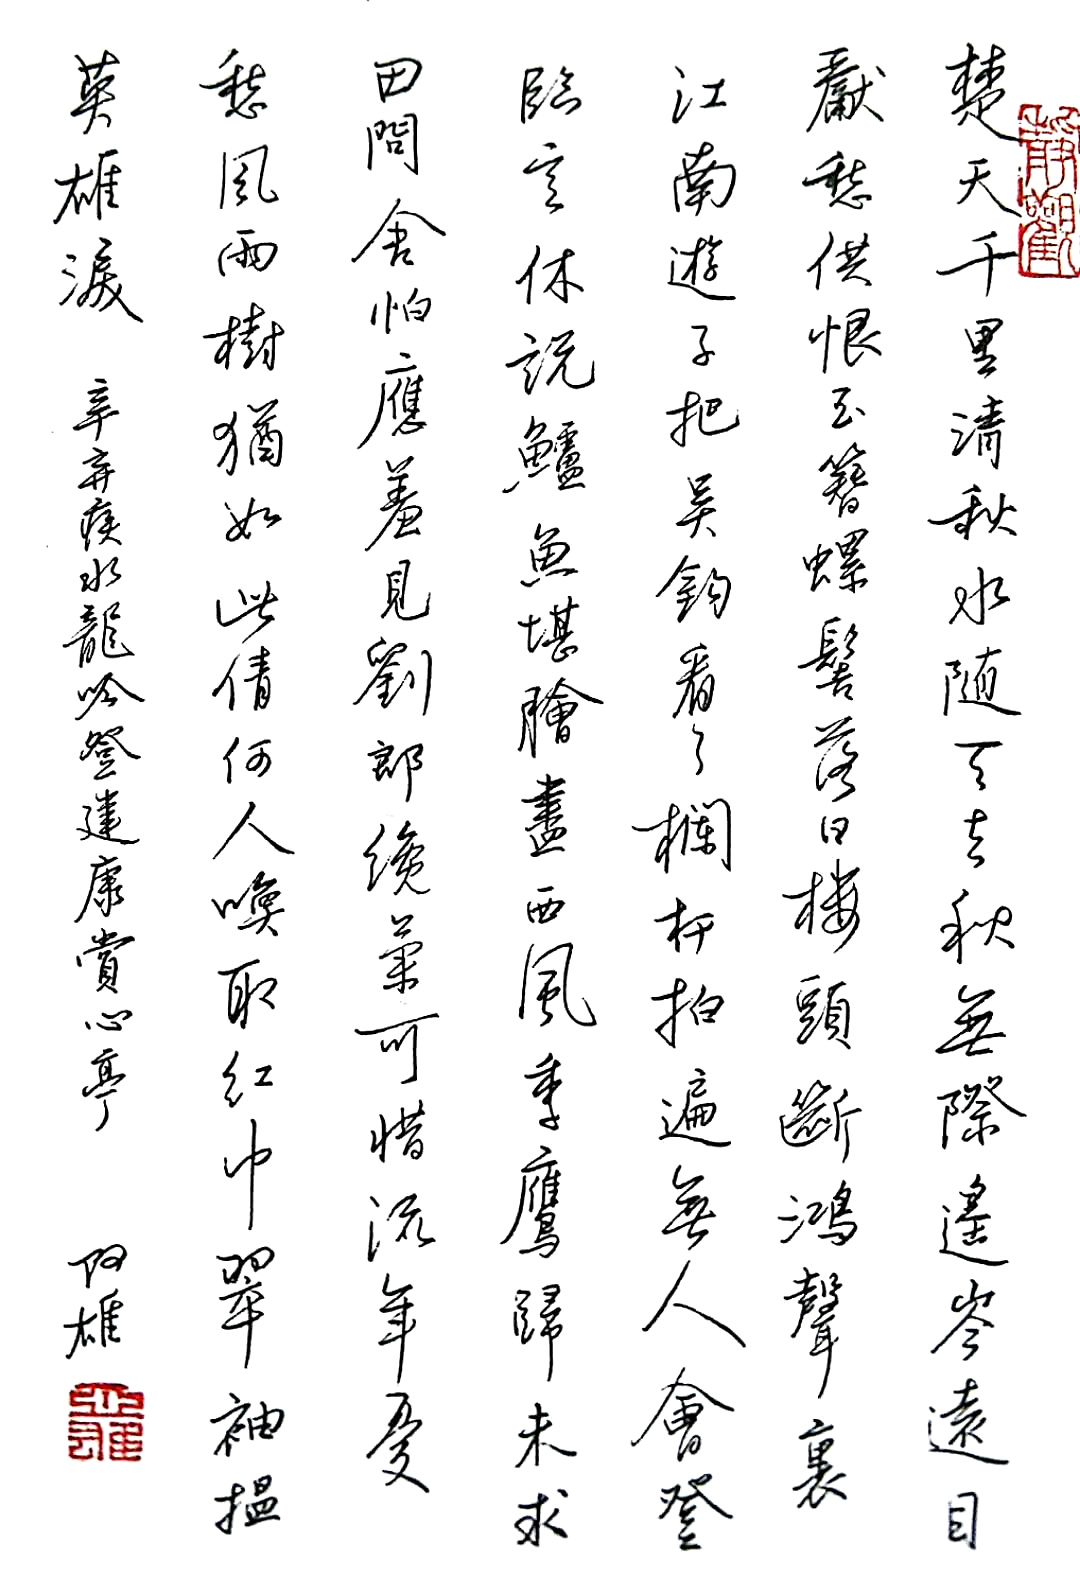 靜觀
楚天千里清秋水随天去秋無際遙岑遠目
獻愁供恨玉簪螺髻落日楼頭斷鴻聲裏
江南遊子把吴鈎看了欄杆拍遍無人會登
臨意休説鱸魚堪膾盡西風季鷹歸未求
田問舍怕應羞見劉郎纔氣可惜流年憂
愁風雨樹猶如此倩何人喚取紅巾翠袖揾
英雄淚 辛弃疾水龍吟登建康賞心亭 阿雄